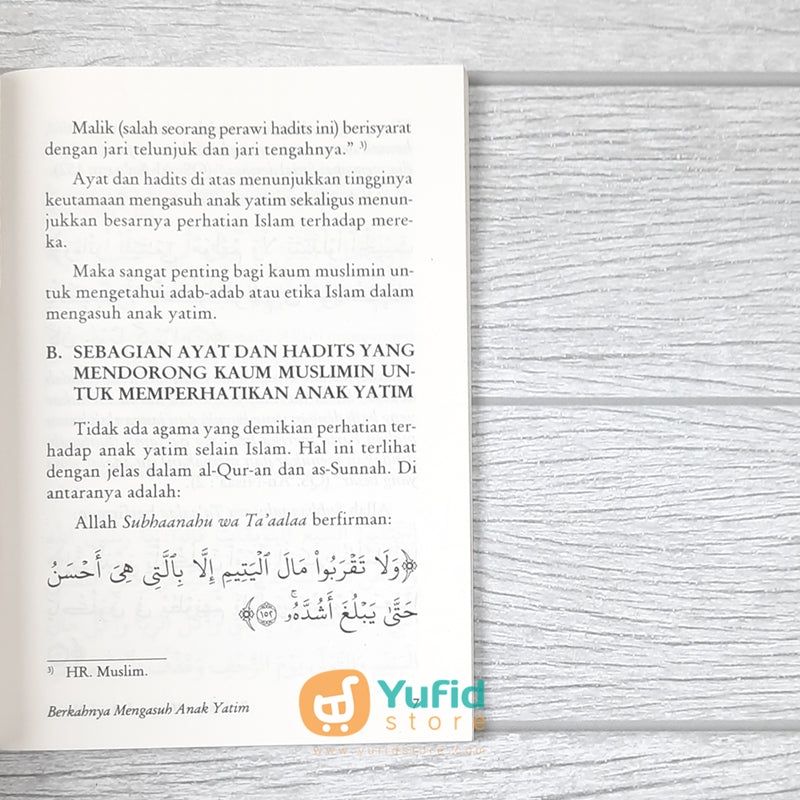 Malik (salah seorang perawi hadits ini) berisyarat
dengan jari telunjuk dan jari tengahnya.” 3)
Ayat dan hadits di atas menunjukkan tingginya
keutamaan mengasuh anak yatim sekaligus menun-
jukkan besarnya perhatian Islam terhadap mere-
ka.
Maka sangat penting bagi kaum muslimin un-
tuk mengetahui adab-adab atau etika Islam dalam
mengasuh anak yatim.
B. SEBAGIAN AYAT DAN HADITS YANG
MENDORONG KAUM MUSLIMIN UN-
TUK MEMPERHATIKAN ANAK YATIM
Tidak ada agama yang demikian perhatian ter-
hadap anak yatim selain Islam. Hal ini terlihat
dengan jelas dalam al-Qur-an dan as-Sunnah. Di
antaranya adalah:
Allah Subhaanahu wa Ta'aalaa berfirman:
﴿وَلَا تَقْرَبُوا۟ مَالَ ٱلْيَتِيمِ إِلَّا بِٱلَّتِى هِىَ أَحْسَنُ
حَتَّىٰ يَبْلُغَ أَشُدَّهُۥ ۚ ١٥٢﴾
3) HR. Muslim.
Berkahnya Mengasuh Anak Yatim 7
Yufid
store
www.yufidstore.com